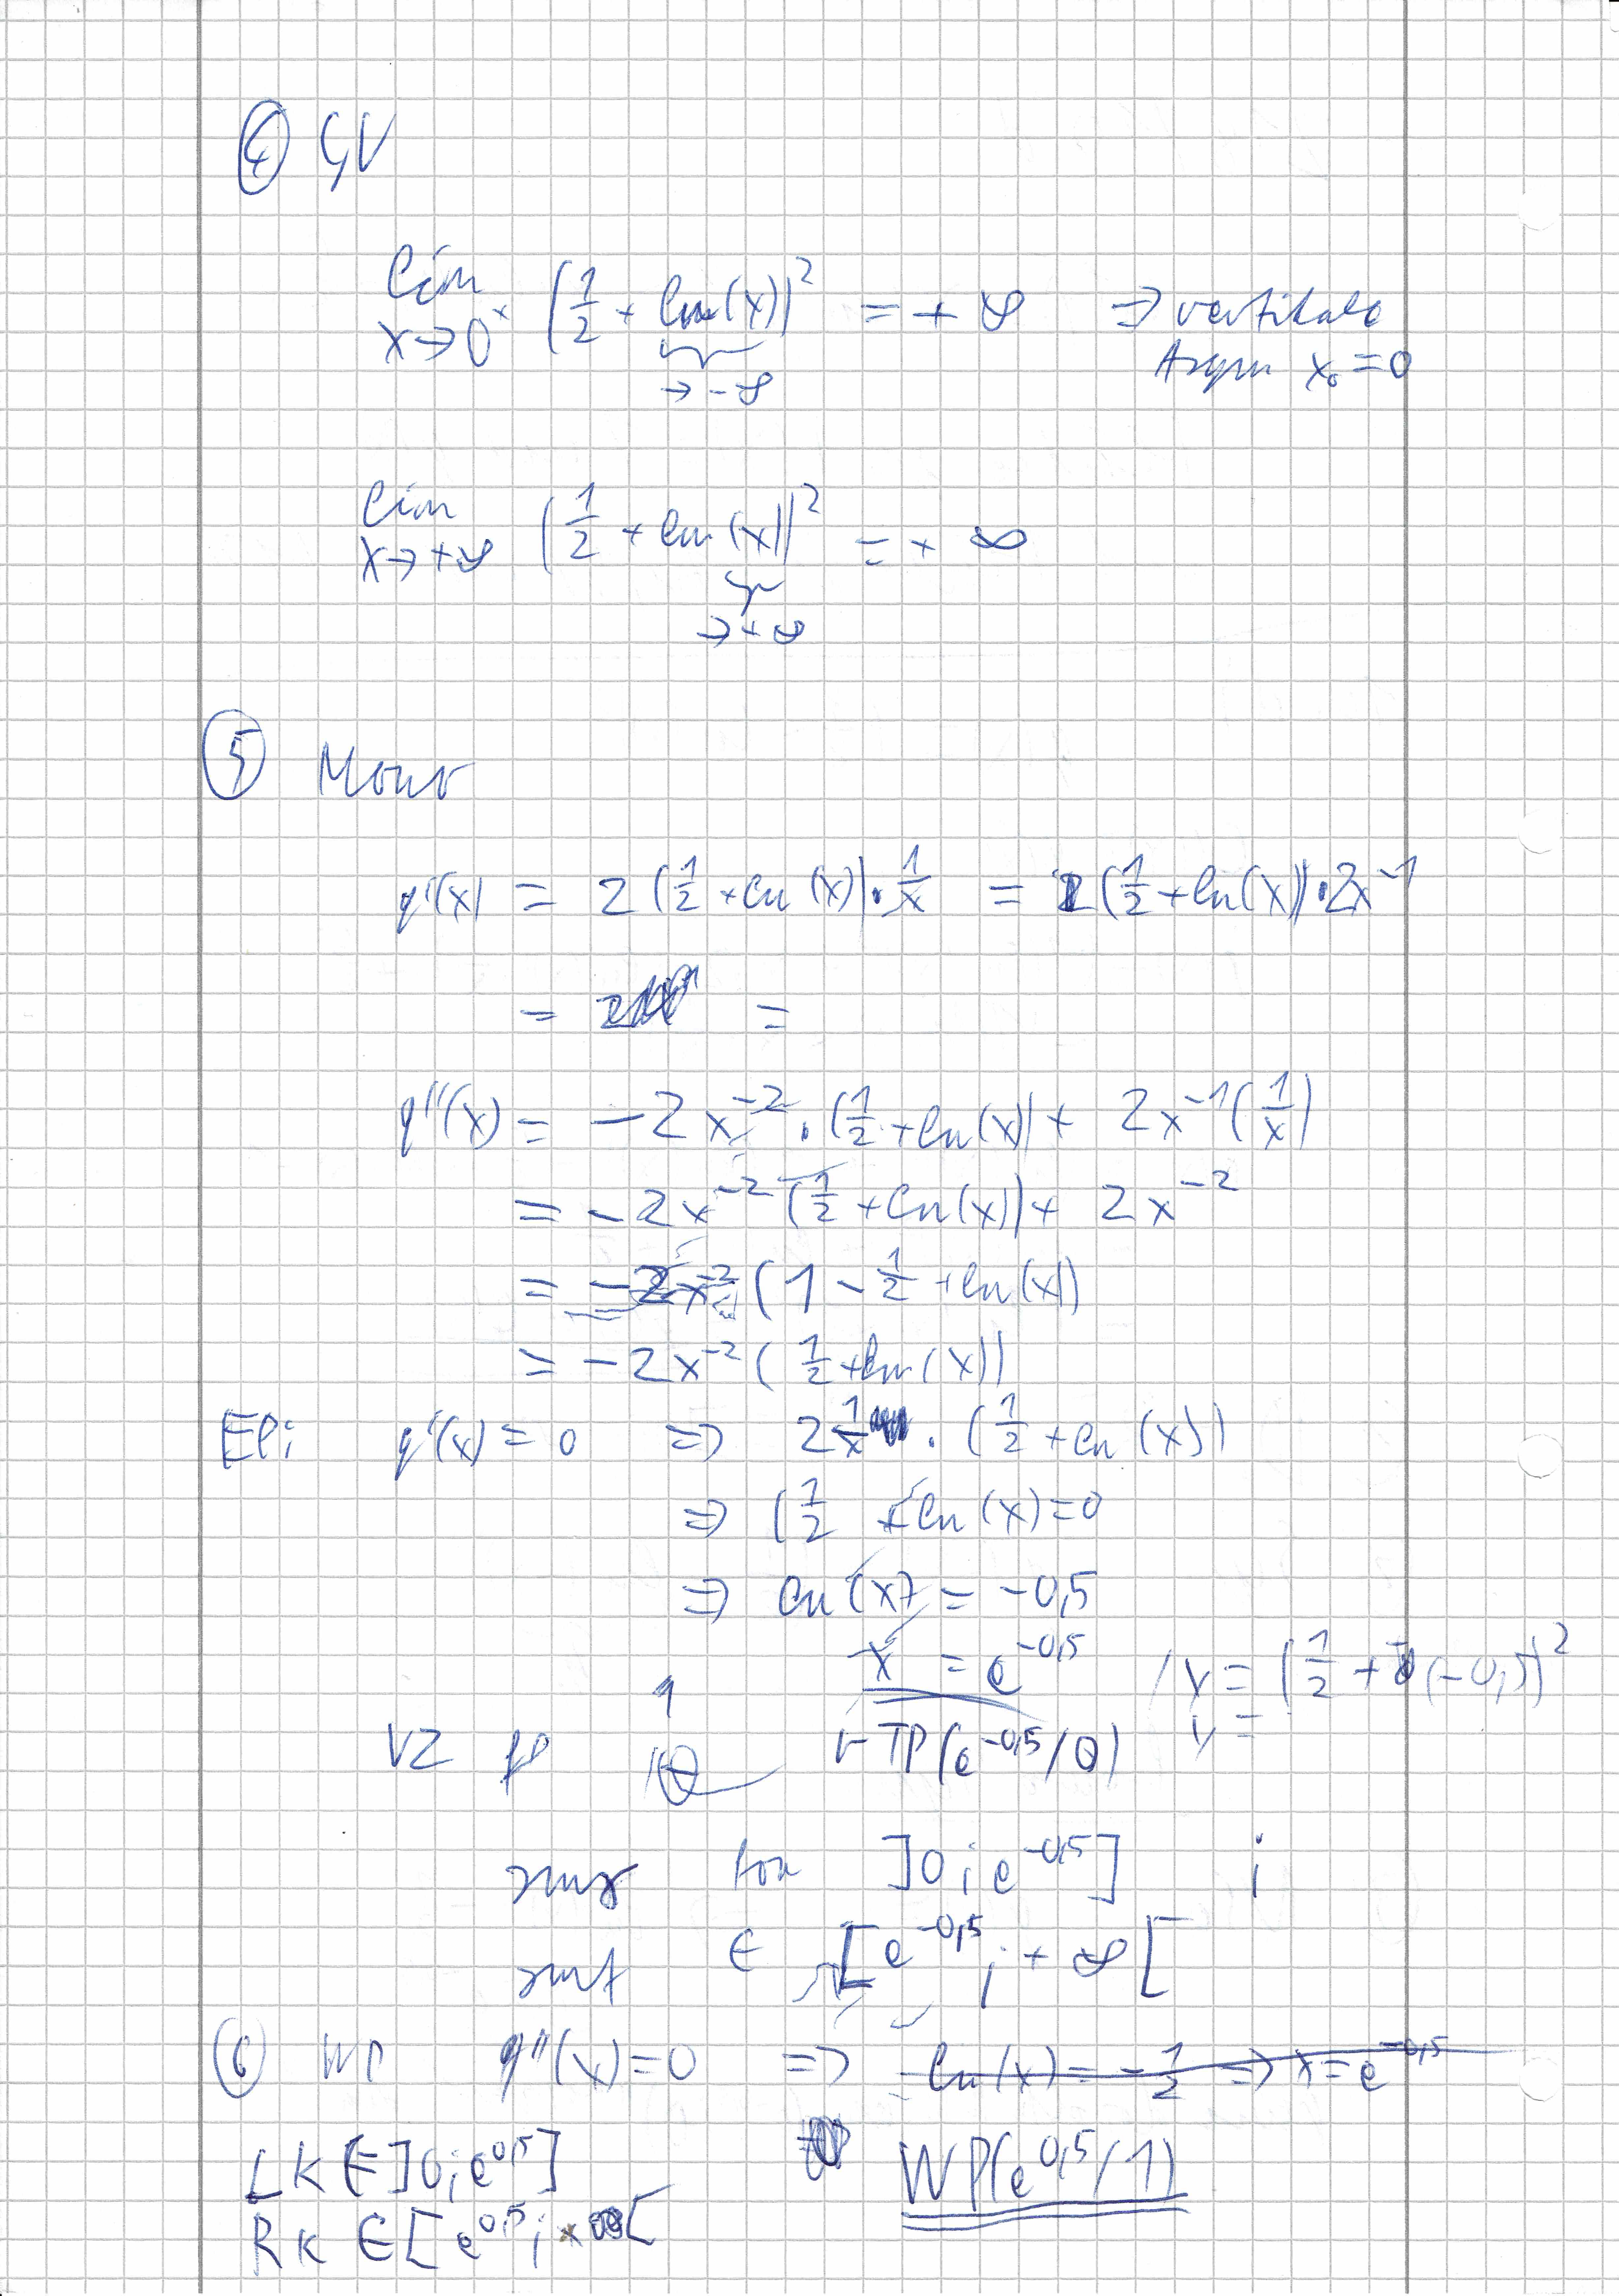 ④ GV
lim x→0⁺ (1/2 + ln(x))² = + ∞ ⇒ vertikale
→ -∞ Asym x₀ = 0
lim x→+∞ (1/2 + ln(x))² = + ∞
→ + ∞
⑤ Mono
g'(x) = 2 (1/2 + ln(x)) · 1/x = (1/2 + ln(x)) · 2x⁻¹
= =
g''(x) = -2x⁻² · (1/2 + ln(x)) + 2x⁻¹ (1/x)
= -2x⁻² (1/2 + ln(x)) + 2x⁻²
= -2x⁻² (1 - 1/2 + ln(x)
= -2x⁻² (1/2 + ln(x))
g'(x) = 0 ⇒ 2 1/x · (1/2 + ln(x))
⇒ (1/2 + ln(x) = 0
⇒ ln(x) = -0,5
x = e^-0,5 / y = (1/2 + (-0,5))²
y =
VZ TP(e^-0,5/0)
smf ]0; e^-0,5] ;
smf ∈ [e^-0,5; + ∞[
⑥ WP g''(x) = 0 ⇒ ln(x) = -1/2 ⇒ x = e^-0,5
LK ∈ ]0; e^0,5] WP(e^0,5/1)
RK ∈ [e^0,5; + ∞[